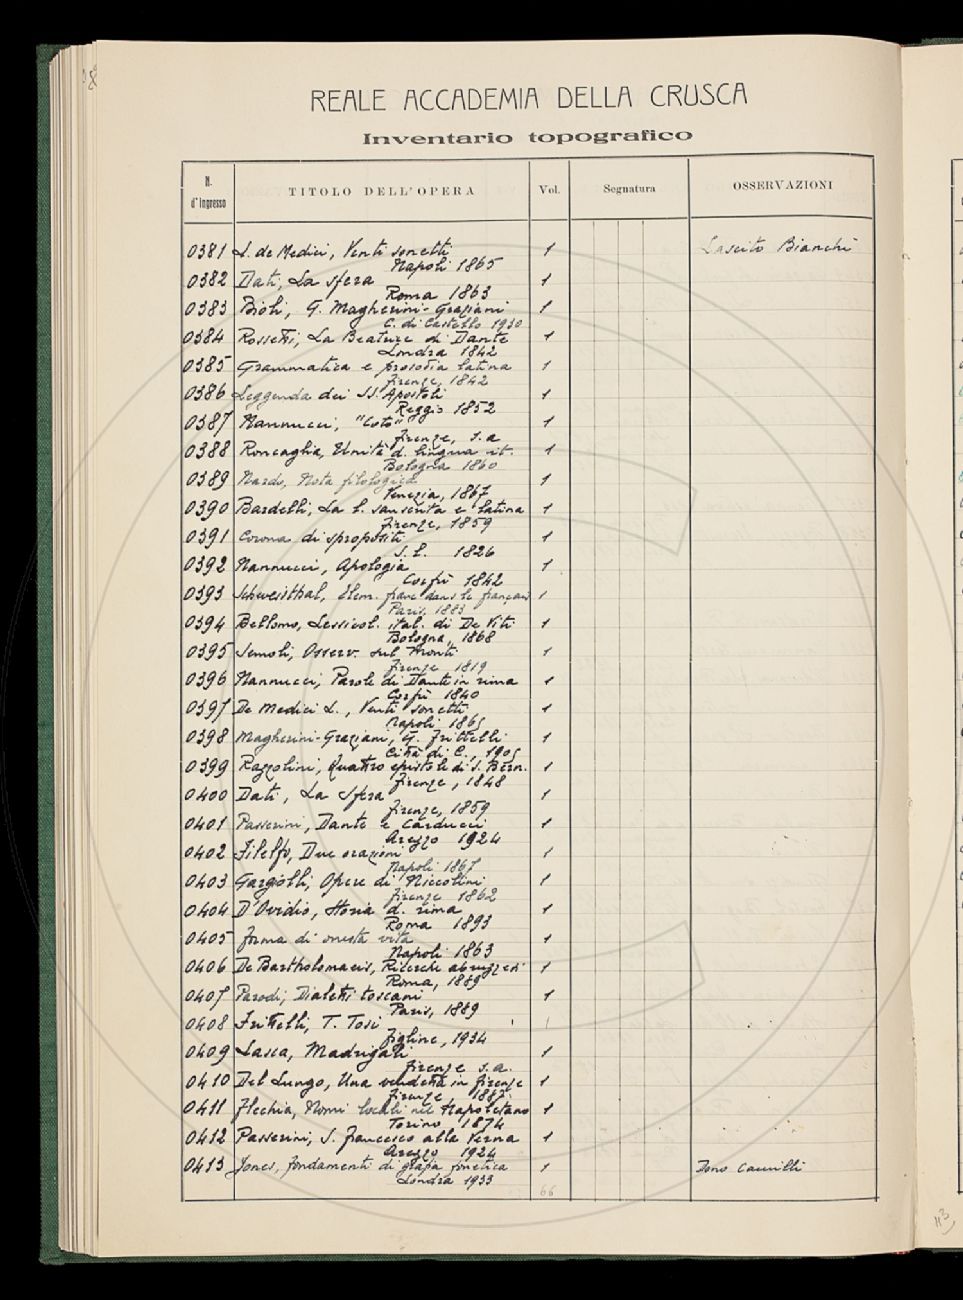 REALE ACCADEMIA DELLA CRUSCA
Inventario topografico
N. d'Ingresso TITOLO DELL'OPERA Vol. Segnatura OSSERVAZIONI
0381 L. de Medici, Venti sonetti 1 Lascito Bianchi
Napoli 1865
0382 Dati, La sfera 1
Roma 1863
0383 Bioli, G. Magherini-Graziani 1
C. di Castello 1930
0384 Rossetti, La Beatrice di Dante 1
Londra 1842
0385 Grammatica e prosodia latina 1
Firenze, 1842
0386 Leggenda dei SS. Apostoli 1
Reggio 1852
0387 Nannucci, "Coto" 1
Firenze, s.a
0388 Roncaglia, Unità d. lingua it. 1
Bologna 1860
0389 Nardo, Nota filologica 1
Venezia, 1867
0390 Bardelli, La l. sanscrita e latina 1
Firenze, 1859
0391 Corona di spropositi 1
S. l. 1826
0392 Nannucci, Apologia 1
Corfù 1842
0393 Schweisthal, Elem. franc dans le français 1
Paris, 1883
0394 Bellomo, Lessicol. ital. di De Viti 1
Bologna, 1868
0395 Semoli, Osserv. sul Monti 1
Firenze 1819
0396 Nannucci, Parole di Dante in rima 1
Corfù 1840
0397 De Medici L., Venti sonetti 1
Napoli 1865
0398 Magherini-Graziani, G. Frittelli 1
Città di C., 1905
0399 Razzolini, Quattro epistole di S. Bern. 1
Firenze, 1848
0400 Dati, La Sfera 1
Firenze, 1859
0401 Passerini, Dante e Carducci 1
Arezzo 1924
0402 Filelfo, Due orazioni 1
Napoli 1867
0403 Gargiolli, Opere di Niccolini 1
Firenze 1862
0404 D'Ovidio, Storia d. rima 1
Roma 1893
0405 Forma di onesta vita 1
Napoli 1863
0406 De Bartholomaeis, Ricerche abruzzesi 1
Roma, 1889
0407 Parodi, Dialetti toscani 1
Paris, 1889
0408 Frittelli, T. Tosi 1
Figline, 1934
0409 Lasca, Madrigali 1
Firenze s.a.
0410 Del Lungo, Una vendetta in Firenze 1
Firenze 1887
0411 Flechia, Nomi locali nel Napoletano 1
Torino 1874
0412 Passerini, S. Francesco alla Verna 1
Arezzo 1924
0413 Jones, Fondamenti di grafia fonetica 1 Dono Camilli
Londra 1933
66